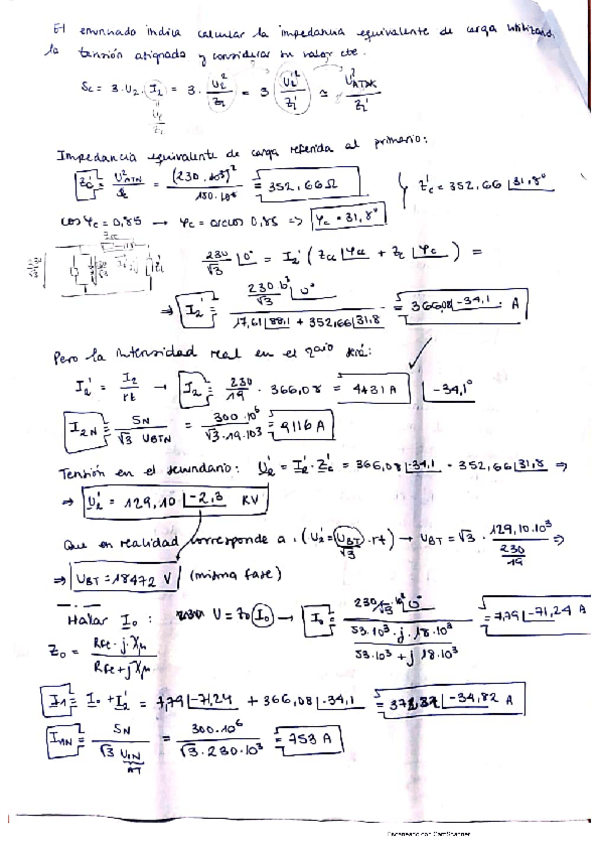 El enunciado indica calcular la impedancia equivalente de carga utilizando
la tensión asignada y considerar su valor cte.
Sc = 3·U2·I2 = 3·U2²/Z2 = 3·U2'²/Z2' ≅ U²ATN/Z2'
U2/Z2
Impedancia equivalente de carga referida al primario:
Zc' = U²ATN/Sc = (230·10³)²/150·10⁶ = 352,66 Ω } Z'c = 352,66 |31,8°
cos φc = 0,85 → φc = arcos 0,85 => φc = 31,8°
230/√3 |0° = I2' (Zcc |φcc + Zc' |φc) =
=> I2' = 230·10³/√3 |0° / 17,61|88,1 + 352,66|31,8 = 366,08 |-34,1 · A
Pero la intensidad real en el 2ario será:
I2' = I2/rt → I2 = 230/19 · 366,08 = 4431 A |-34,1°
I2N = SN/√3 UBTN = 300·10⁶/√3·19·10³ = 9116 A
Tensión en el secundario: U2' = I2'·Zc' = 366,08|-34,1 · 352,66|31,8 =>
=> U2' = 129,10 |-2,3 KV
Que en realidad corresponde a: (U2' = UBT/√3 · rt) → UBT = √3 · 129,10·10³/230/19 =>
=> UBT = 18472 V (misma fase)
Hallar I0: U = Z0 I0 → I0 = 230/√3·10³ |0° / 53·10³·j·18·10³/53·10³ + j 18·10³ = 7,79 |-71,24 A
Z0 = RFe·j·Xμ/RFe + jXμ
I1 = I0 + I2' = 7,79 |-71,24 + 366,08 |-34,1 = 372,32 |-34,82 A
I1N = SN/√3 U1N = 300·10⁶/√3·230·10³ = 753 A
AT
Escaneado con CamScanner